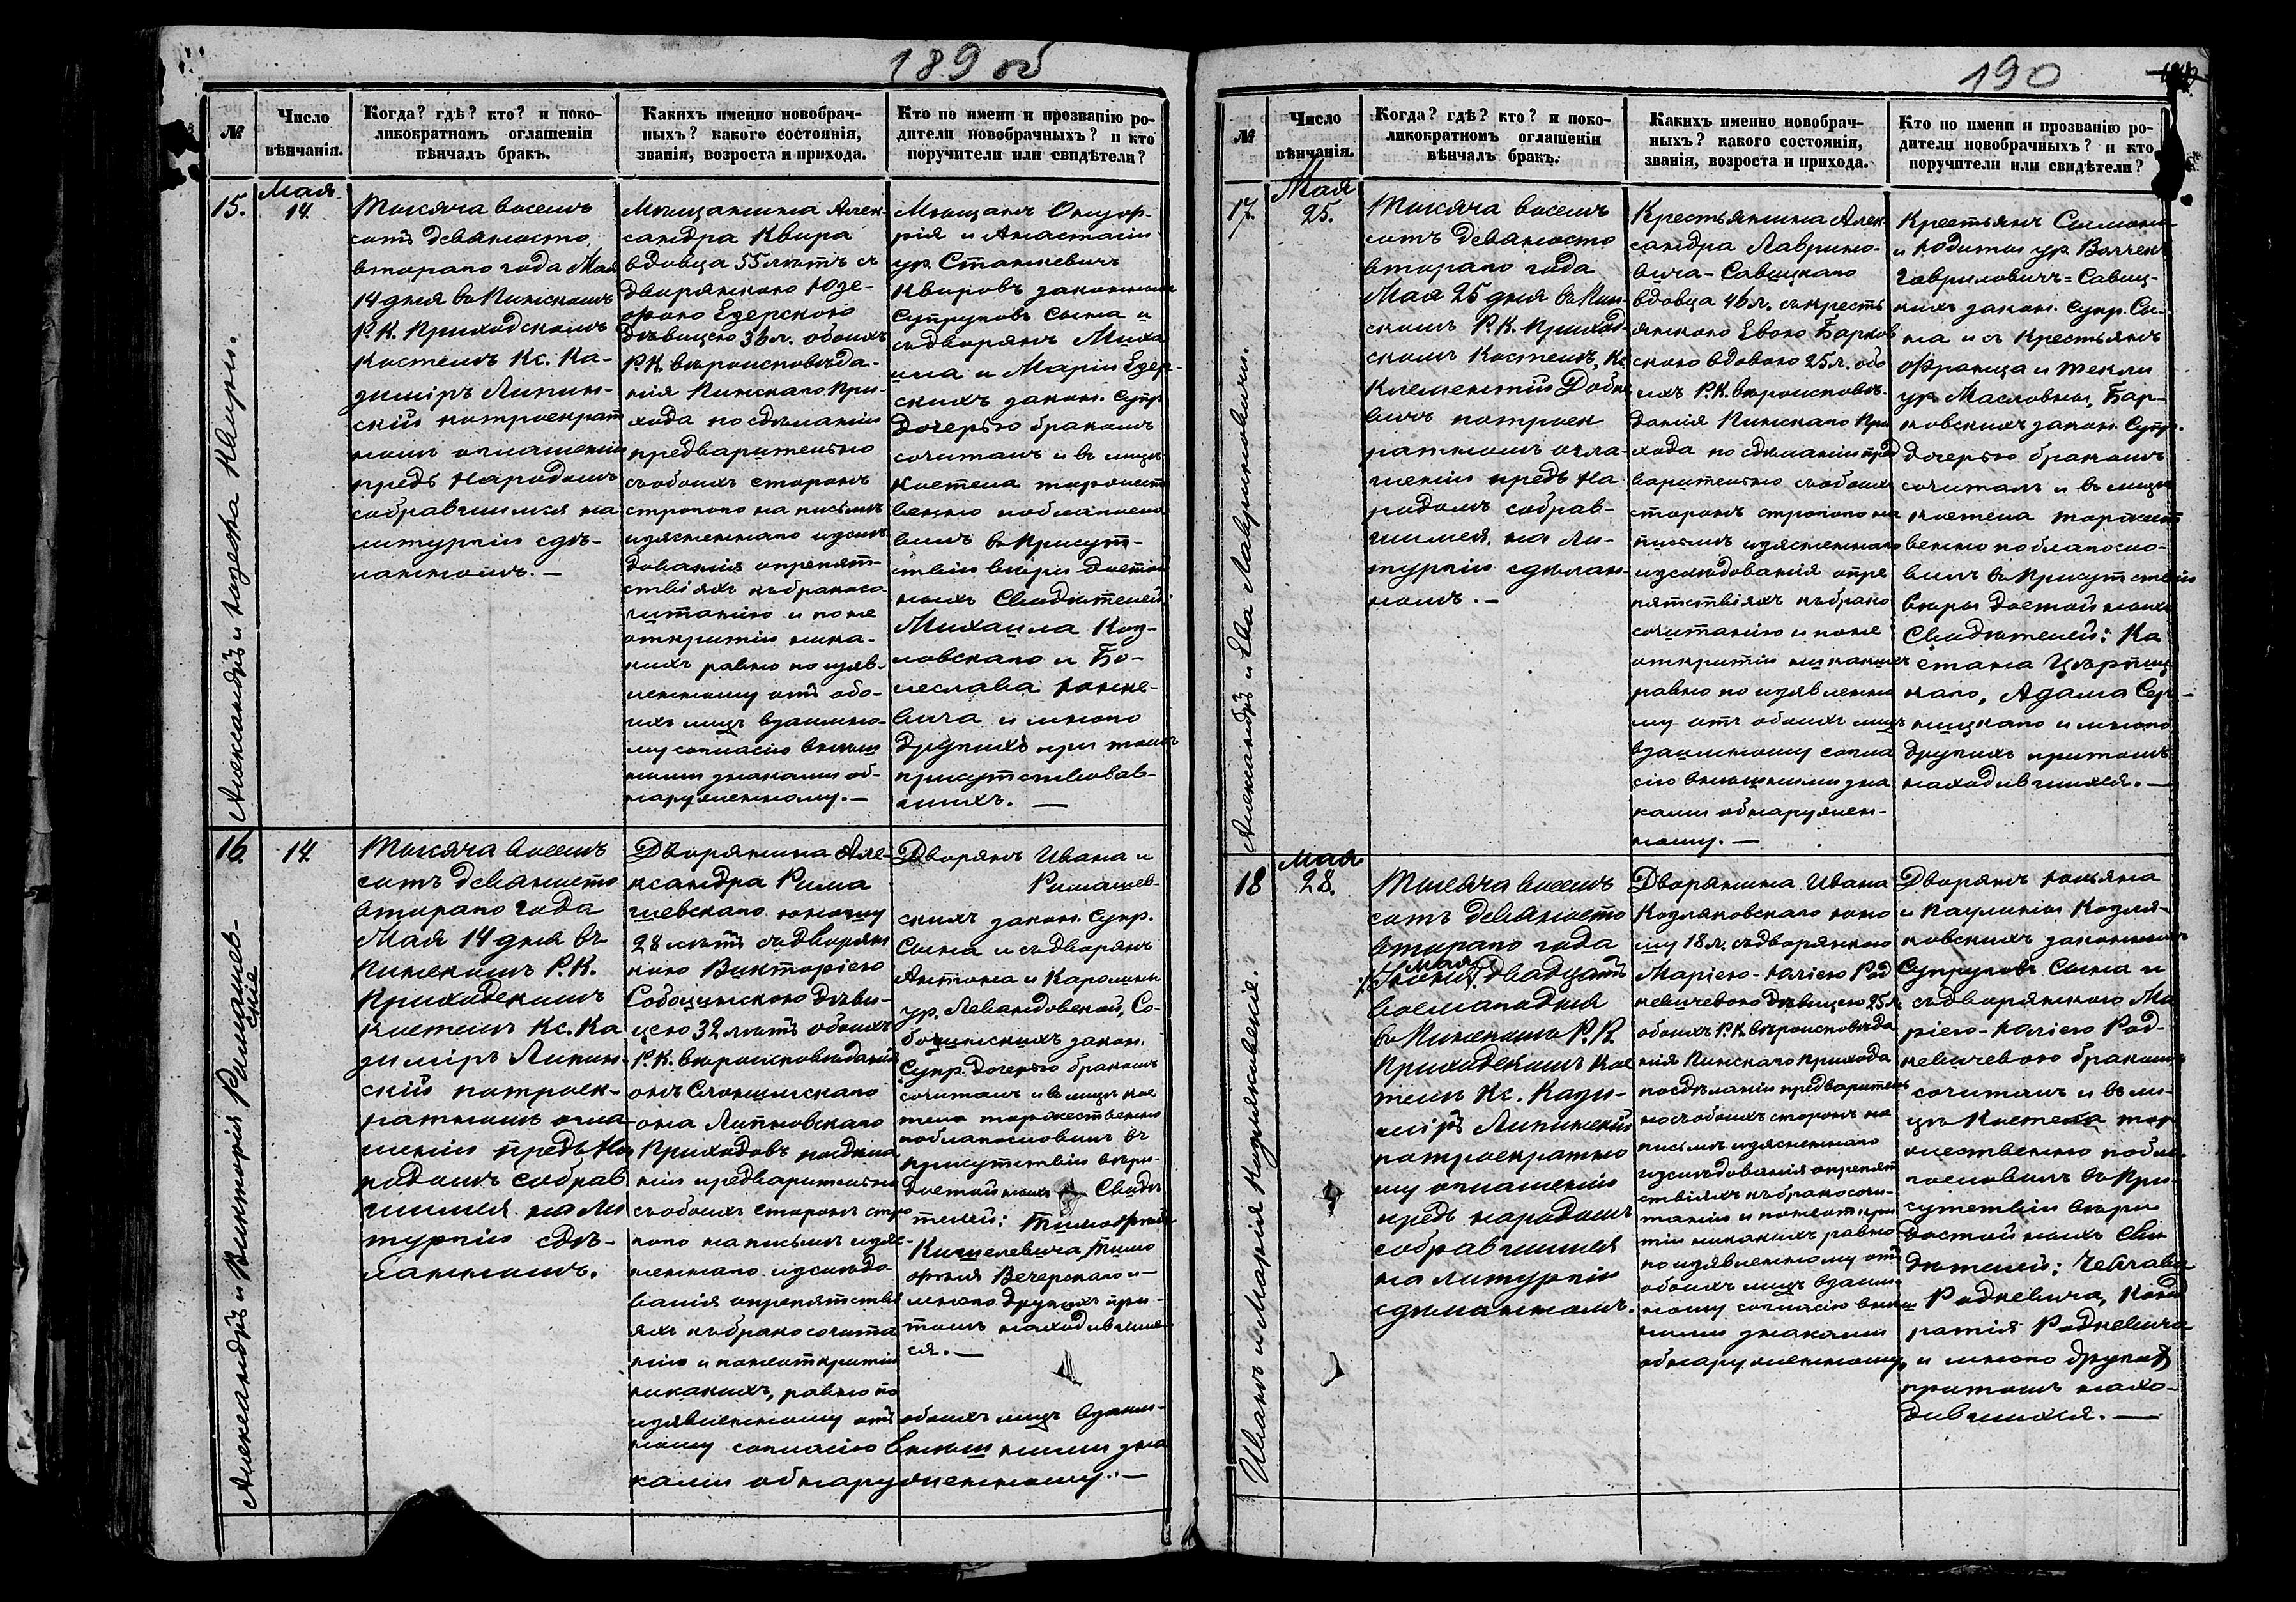 189 об
№
Число
вѣнчанія.
Когда? гдѣ? кто? и поко-
ликократномъ оглашеніи
вѣнчалъ бракъ.
Какихъ именно новобрач-
ныхъ? какого состоянія,
званія, возроста и прихода.
Кто по имени и прозванію ро-
дители новобрачныхъ? и кто
поручители или свидѣтели?
15.
Александръ и Юзефа Квиры.
Мая
14.
Тысяча восемь
сотъ девяносто
втораго года Мая
14 дня въ Пинскомъ
Р. К. Приходскомъ
Костелѣ Кс. Ка-
зиміръ Липин-
скій потроекрат
номъ оглашеніи
предъ народомъ
собравшимся на
литургіи сдѣ-
ланномъ. —
Мѣщанина Алек-
сандра Квира
вдовца 55 лѣтъ съ
Дворянкою Юзе-
фою Едерскою
Дѣвицею 36 л. обоихъ
Р. К. вѣроисповѣда-
нія Пинскаго При-
хода по сдѣланіи
предварительно
съ обоихъ сторонъ
строгого на письмѣ
изясненнаго изслѣ
дованія о препят-
ствіяхъ къ бракосо-
читанію и по не
открытіи ника-
кихъ равно по изяв-
ленному отъ обо-
ихъ лицъ взаимно-
му согласію внѣшн
ними знаками об-
наруженному. —
Мѣщанъ Онуф-
рія и Анастасіи
ур. Станкевичъ
Квировъ законныхъ
Супруговъ сына и
съ дворянъ Миха
ила и Маріи Едер-
скихъ закон. супр.
Дочерью бракомъ
сочиталъ и въ лицѣ
Костела торжест
венно поблагосло
вилъ въ присут-
ствіи вѣры достой
ныхъ Свидѣтелей:
Михаила Коз-
ловскаго и Бо-
леслава Юшке-
вича и много
другихъ при томъ
присутствовав-
шихъ. —
16
Александръ и Викторія Римашев-
скіе
14
Тысяча восемь
сотъ девяносто
втораго года
Мая 14 дня въ
Пинскомъ Р. К.
Приходскомъ
Костелѣ Кс. Ка
зиміръ Липин-
скій потроек-
ратномъ огла-
шеніи предъ На
родомъ собрав
шимся на Ли
тургіи сдѣ-
ланномъ.
Дворянина Але-
ксандра Рима
шевскаго юношу
28 лѣтъ съ дворян
кою Викторіею
Собоцинскою дѣви-
цею 32 лѣтъ обоихъ
Р. К. вѣроисповѣданія
онъ Слонимскаго
она Липновскаго
Приходовъ по сдѣла
ніи предварительно
съ обоихъ сторонъ стро
гого на письмѣ изяс-
неннаго изслѣдо
ванія о препятстві
яхъ къ бракосочита
нію и по не открытіи
никакихъ, равно по
изявленному отъ обоихъ лицъ взаим-
ному согласію внѣшними зна
ками обнаруженному. —
Дворянъ Ивана и
Римашев-
скихъ закон. супр.
Сына и съ дворянъ
Антона и Каролины
ур. Левандовской, Со-
боцинскихъ закон.
Супр. Дочерью бракомъ
сочиталъ и въ лицѣ кос
тела торжественно
поблагословилъ въ
присутствіи вѣры
достойныхъ Свидѣ
телей:
Вечерскаго и
много другихъ при-
томъ находивших
ся. —
190
№
Число
вѣнчанія.
Когда? гдѣ? кто? и поко-
ликократномъ оглашеніи
вѣнчалъ бракъ.
Какихъ именно новобрач-
ныхъ? какого состоянія,
званія, возроста и прихода.
Кто по имени и прозванію ро-
дители новобрачныхъ? и кто
поручители или свидѣтели?
17.
Александръ и Ева Лавриновичи.
Мая
25.
Тысяча восемь
сотъ девяносто
втораго года
Мая 25 дня въ Пин-
скомъ Р. К. Приход-
скомъ Костелѣ, Кс
Климентій Добке
вичъ потроек
ратномъ огла-
шеніи предъ на
родомъ собрав-
шимся на Ли-
тургіи сдѣлан-
номъ. —
Крестьянина Алек-
сандра Лаврино-
вича-Савицкаго
вдовца 46 л. съ кресть
янкою Евою Барков
скою вдовою 25 л. обо
ихъ Р. К. вѣроисповѣ-
данія Пинскаго При
хода по сдѣланіи пред
варительно съ обоихъ
сторонъ строгого на
письмѣ изясненнаго
изслѣдованія о пре
пятствіяхъ къ брако
сочитанію и по не
открытіи никакихъ
равно по изявленно
му отъ обоихъ лицъ
взаимному согла
сію внѣшними зна
ками обнаружен-
ному. —
Крестьянъ Симона
и Юдиты ур. Волчекъ
Гавриловичъ=Савиц-
кихъ закон. супр. Сы-
на и съ Крестьянъ
Франца и Теклы
ур. Масловны, Бар-
ковскихъ закон. Супр.
дочерью бракомъ
сочиталъ и въ лицѣ
костела торжест
венно поблагосло-
вилъ въ присутствіи
вѣры достойныхъ
Свидѣтелей: Ка
етана
наго, Адама
и много
другихъ притомъ
находившихся. —
18
Иванъ и Марія Козляковскіе.
Мая
28.
Тысяча восемь
сотъ девяносто
втораго года
Мая двадцать
восьмаго дня
въ Пинскомъ Р. К.
Приходскомъ Кос
телѣ Кс. Кази-
міръ Липинскій
потроекратно
му оглашенію
предъ народомъ
собравшимся
на литургіи
сдѣланномъ.
Дворянина Ивана
Козляковскаго юно
шу 18 л. съ дворянкою
Маріею-Юліею Род
кевичевою дѣвицею 25 л.
обоихъ Р. К. вѣроисповѣда
нія Пинскаго прихода
по сдѣланіи предварител
но съ обоихъ сторонъ на
письмѣ изясненнаго
изслѣдованія о препят
ствіяхъ къ бракосочи-
танію и по не откры
тіи никакихъ равно
по изявленному отъ
обоихъ лицъ взаим
ному согласію внѣш
ними знаками
обнаруженному,
Дворянъ Юльяна
и Паулины Козля-
ковскихъ законныхъ
Супруговъ сына и
съ дворянкою Ма
ріею-Юліею Род-
кевичевою бракомъ
сочиталъ и въ ли-
цѣ Костела тор
жественно побла-
гословилъ въ при-
сутствіи вѣры
достойныхъ Сви
дѣтелей: Чеслава
Родкевича, Конд
ратія Родкевича
и много другихъ
притомъ нахо-
дившихся. —